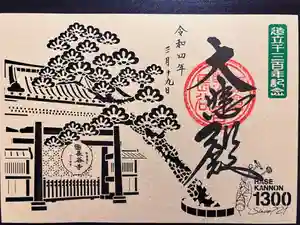 造立千三百年記念
令和四年
三月十九日
大悲殿
長谷寺
HASE
KANNON
1300
Since 721